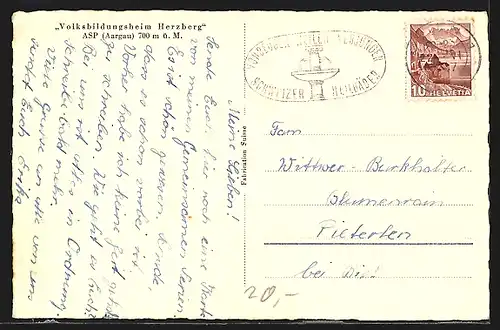 „Volksbildungsheim Herzberg"
ASP (Aargau) 700 m ü. M.
Meine Lieben!
Sende Euch hier noch eine Karte
von meinen Gemeinsamen Ferien.
Es ist schön gewesen, schade,
dass so schon vorbei ist.
Vorher habe ich keine Zeit gehabt
zu schreiben. Wie geht es Euch?
Bei uns ist alles in Ordnung.
Schreibe bald mehr.
Viele Grüsse an alle von uns
Euch Erika
Fabrication Suisse
SCHWEIZER HEILBÄDER
10 HELVETIA
Fam
Wittwer-Burkhalter
Blumenrain
Pieterlen
bei Biel
20,-